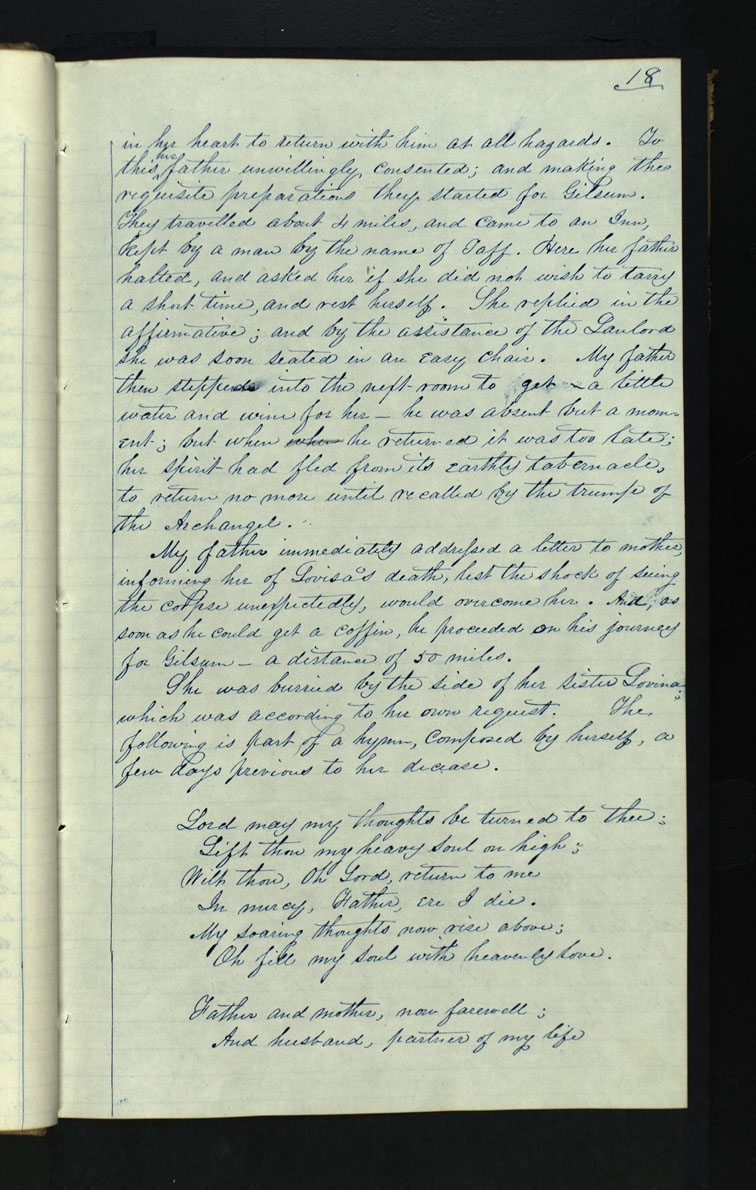 18
in her heart to return with him at all hazards. To
this, her father unwillingly consented; and making the
requisite preparations they started for Gilsum.
They travelled about 4 miles, and came to an Inn,
kept by a man by the name of Taff. Here her father
halted, and asked her if she did not wish to tarry
a short time, and rest herself. She replied in the
affirmative; and by the assistance of the Lanlord
she was soon seated in an easy chair. My father
then stepped into the next room to get a little
water and wine for her — he was absent but a mom-
ent; but when when he returned it was too late;
her spirit had fled from its earthly tabernacle,
to return no more until recalled by the trump of
the Archangel.
My father immediately addressed a letter to mother,
informing her of Lovisa's death, lest the shock of seeing
the corpse unexpectedly, would overcome her. And, as
soon as he could get a coffin, he proceeded on his journey
for Gilsum — a distance of 50 miles.
She was burried by the side of her sister Lovina;
which was according to her own request. The
following is part of a hymn, composed by herself, a
few days previous to her decease.
Lord may my thoughts be turned to thee;
Lift thou my heavy soul on high;
Wilt thou, Oh Lord, return to me
In mercy, Father, ere I die.
My soaring thoughts now rise above;
Oh fill my soul with heavenly love.
Father and mother, now farewell;
And husband, partner of my life